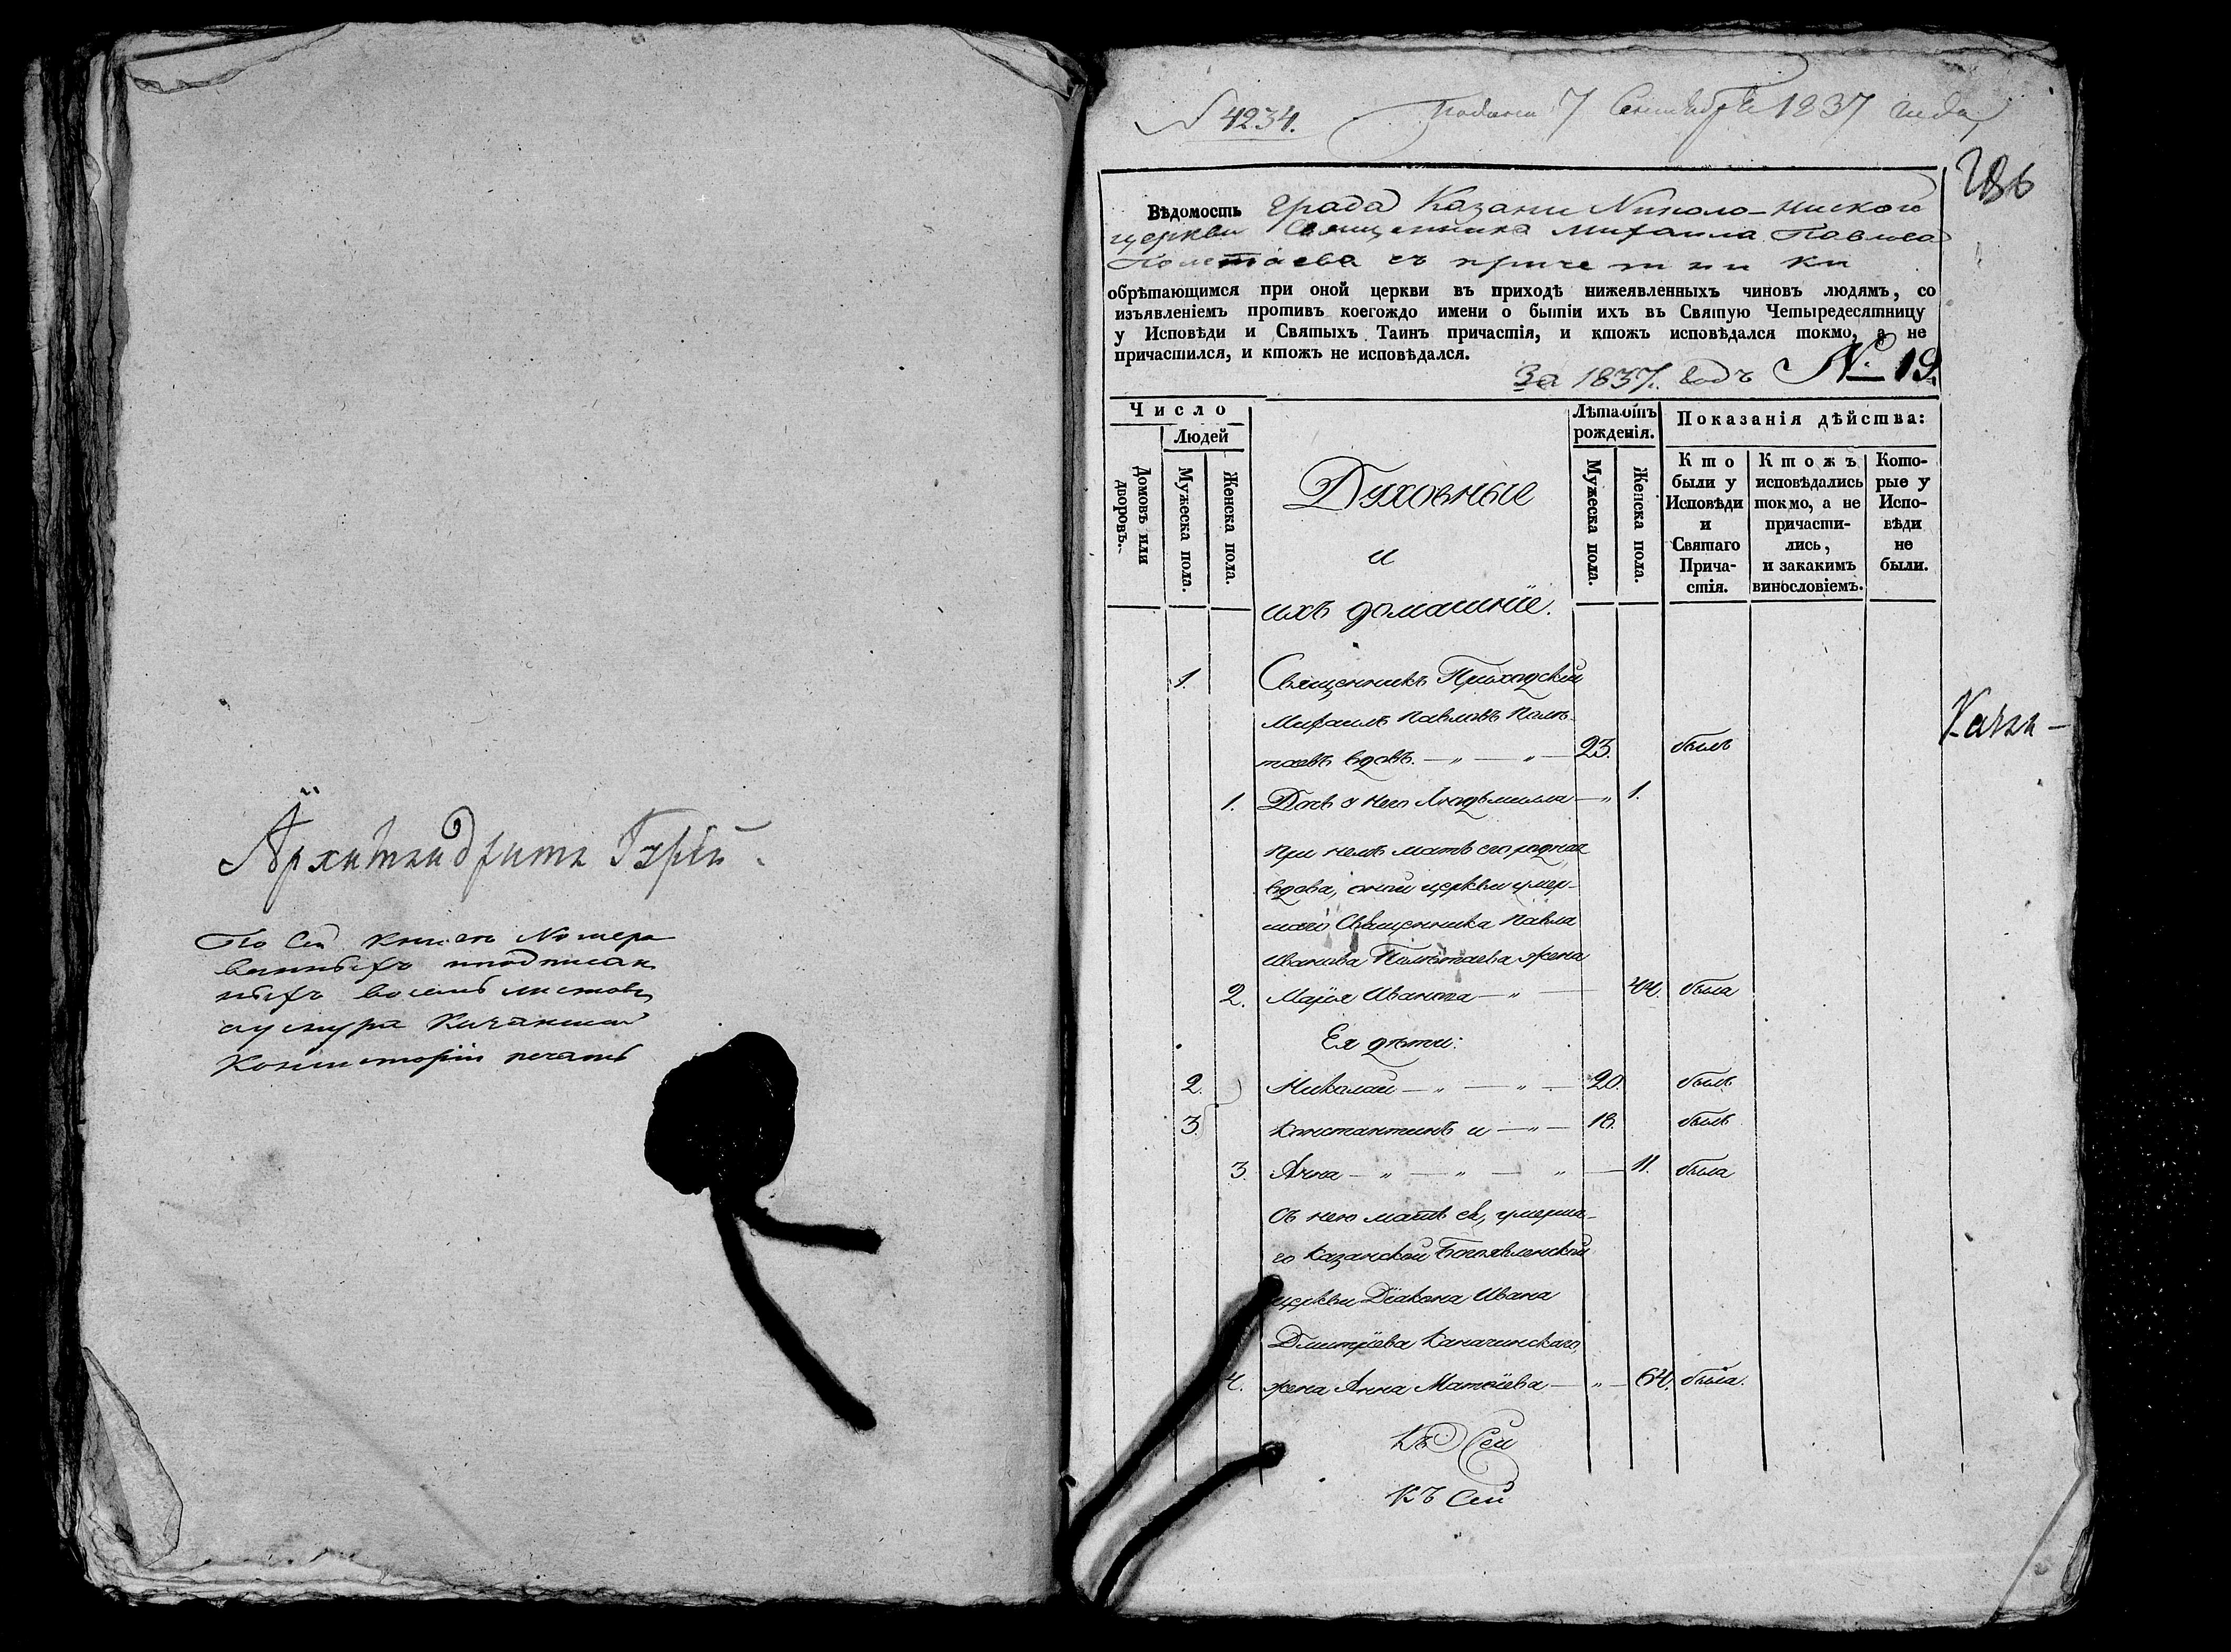 Архимандритъ Гурій.
По сей книгѣ Номеро
ванныхъ иподписан
ныхъ восемь листовъ
аушнура Казанской
Консисторіи печать
N 4234.
Подана 7 Сентября 1837 года
286
Вѣдомость града Казани Николо-Нискои
церкви Священника Михаила Павлова
Полетаева съ причетники
обрѣтающимся при оной церкви въ приходѣ нижеявленныхъ чиновъ людямъ, со
изъявленіемъ противъ коегождо имени о бытіи ихъ въ Святую Четыредесятницу
у Исповѣди и Святыхъ Таинъ причастія, и ктожъ исповѣдался токмо, а не
причастился, и ктожъ не исповѣдался.
За 1837. годъ № 19.
Число
Людей
Домовъ или дворовъ.
Мужеска пола.
Женска пола.
Духовные
и
ихъ домашніе.
Лѣта отъ рожденія.
Мужеска пола.
Женска пола.
Показанія дѣйства:
Кто были у Исповѣди и Святаго Причастія.
Ктожъ исповѣдались токмо, а не причастились, и закакимъ винословіемъ.
Которые у Исповѣди не были.
1. Священникъ Приходскій
Михаилъ Павловъ Полѣ-
таевъ вдовъ. — „ — „ — 23. былъ
1. Дочь у него Людьмилла — „ 1.
При немъ мать его родная
вдова, оной церкви умер-
шаго Священника Павла
Иванова Полѣтаева жена
2. Марія Иванова — „ — 44. была
Ея дѣти:
2. Николай — „ — „ — 20. былъ
3. Константинъ и — „ — 18. былъ
3. Анна — „ — „ — „ — 11. была
Съ нею мать ея, умерша-
го Казанской Богоявленской
церкви Діакона Ивана
Дмитріева Каначинскаго,
4. жена Анна Матѳіева — „ — 64. была.
Къ Сей
Къ Сей